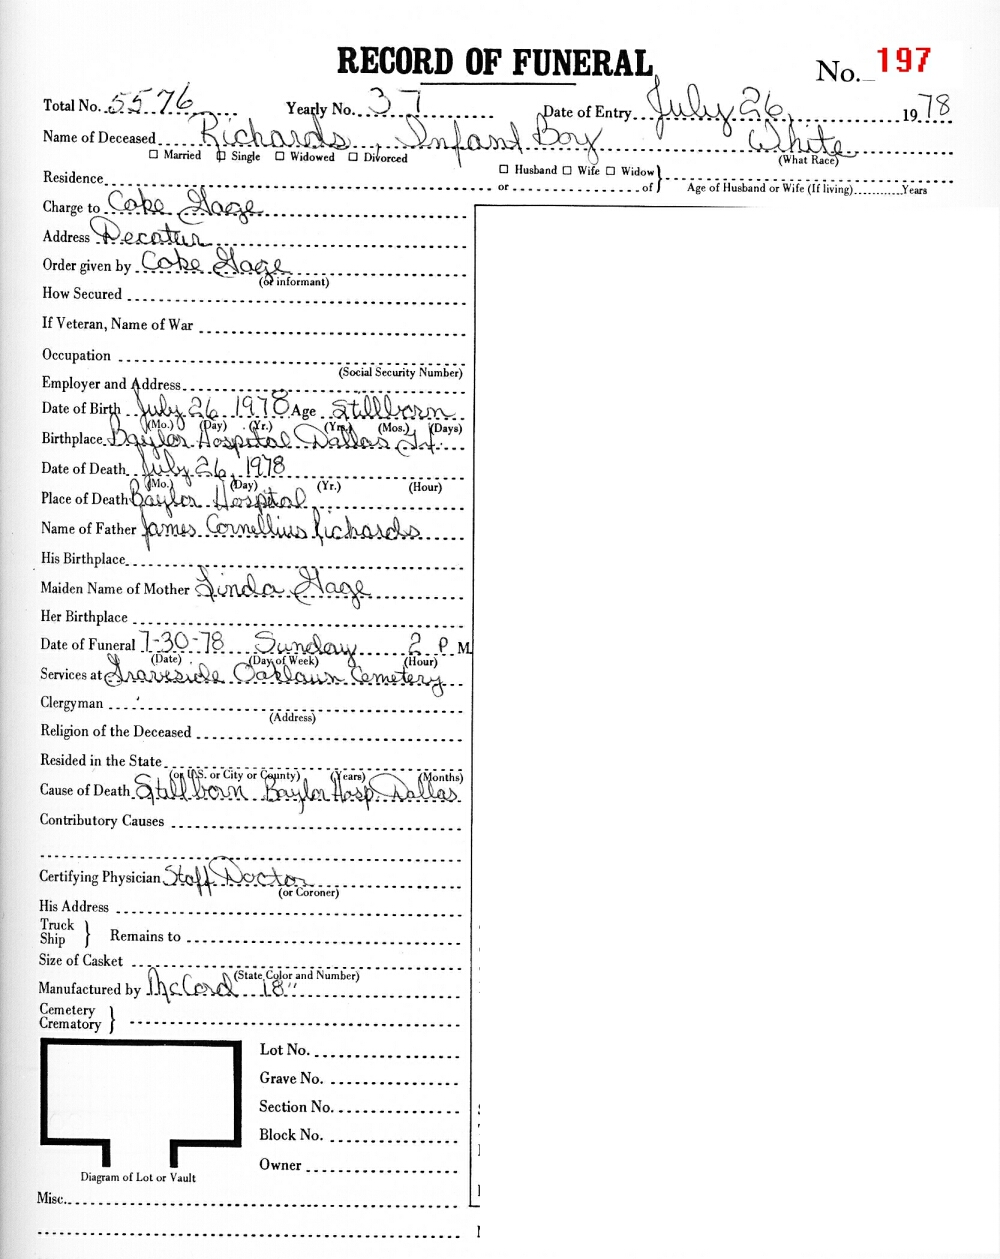 RECORD OF FUNERAL
No. 197
Total No. 5576 Yearly No. 37 Date of Entry July 26, 1978
Name of Deceased Richards, Infant Boy White
☐ Married ☐ Single ☐ Widowed ☐ Divorced (What Race)
☐ Husband ☐ Wife ☐ Widow
Residence or of Age of Husband or Wife (If living) Years
Charge to Coke Gage
Address Decatur
Order given by Coke Gage
(or informant)
How Secured
If Veteran, Name of War
Occupation
(Social Security Number)
Employer and Address
Date of Birth July 26 1978 Age Stillborn
(Mo.) (Day) (Yr.) (Yrs.) (Mos.) (Days)
Birthplace Baylor Hospital Dallas Tx.
Date of Death July 26, 1978
(Mo.) (Day) (Yr.) (Hour)
Place of Death Baylor Hospital
Name of Father James Cornellius Richards
His Birthplace
Maiden Name of Mother Linda Gage
Her Birthplace
Date of Funeral 7-30-78 Sunday 2 P M.
(Date) (Day of Week) (Hour)
Services at Graveside Oaklawn Cemetery
Clergyman
(Address)
Religion of the Deceased
Resided in the State
(or U.S. or City or County) (Years) (Months)
Cause of Death Stillborn Baylor Hosp. Dallas
Contributory Causes
Certifying Physician Staff Doctor
(or Coroner)
His Address
Truck
Ship } Remains to
Size of Casket
(State Color and Number)
Manufactured by McCord 18"
Cemetery
Crematory }
Lot No.
Grave No.
Section No.
Block No.
Owner
Diagram of Lot or Vault
Misc.